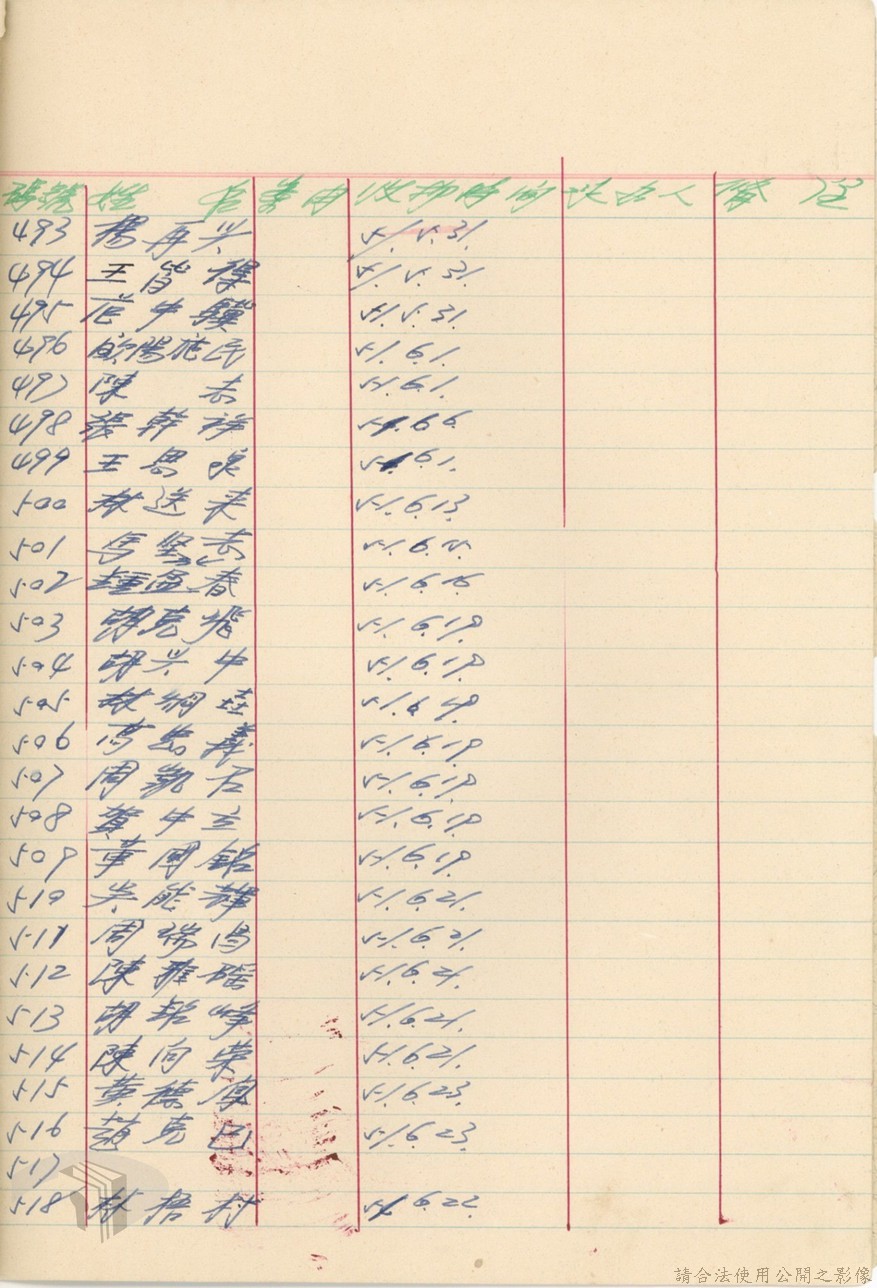 號號 姓 名 案由 收押時間 訊出人 備 註
493 楊再興 51.5.31.
494 王皆得 51.5.31.
495 范中驥 51.5.31.
496 歐陽施民 51.6.1.
497 陳 志 51.6.1.
498 張幹祥 51.6.6.
499 王思泉 51.6.1.
500 林送來 51.6.13.
501 馬堅志 51.6.15.
502 鍾盈春 51.6.16.
503 胡克飛 51.6.19.
504 胡興中 51.6.19.
505 林綱 51.6.19.
506 高志義 51.6.19.
507 周凱君 51.6.19.
508 賀中立 51.6.19.
509 章國銘 51.6.19.
510 吳能輝 51.6.21.
511 周瑞昌 51.6.21.
512 陳 51.6.21.
513 胡銘峰 51.6.21.
514 陳向榮 51.6.21.
515 黃德 51.6.23.
516 趙克 51.6.23.
517
518 林梧村 51.6.22.
請合法使用公開之影像